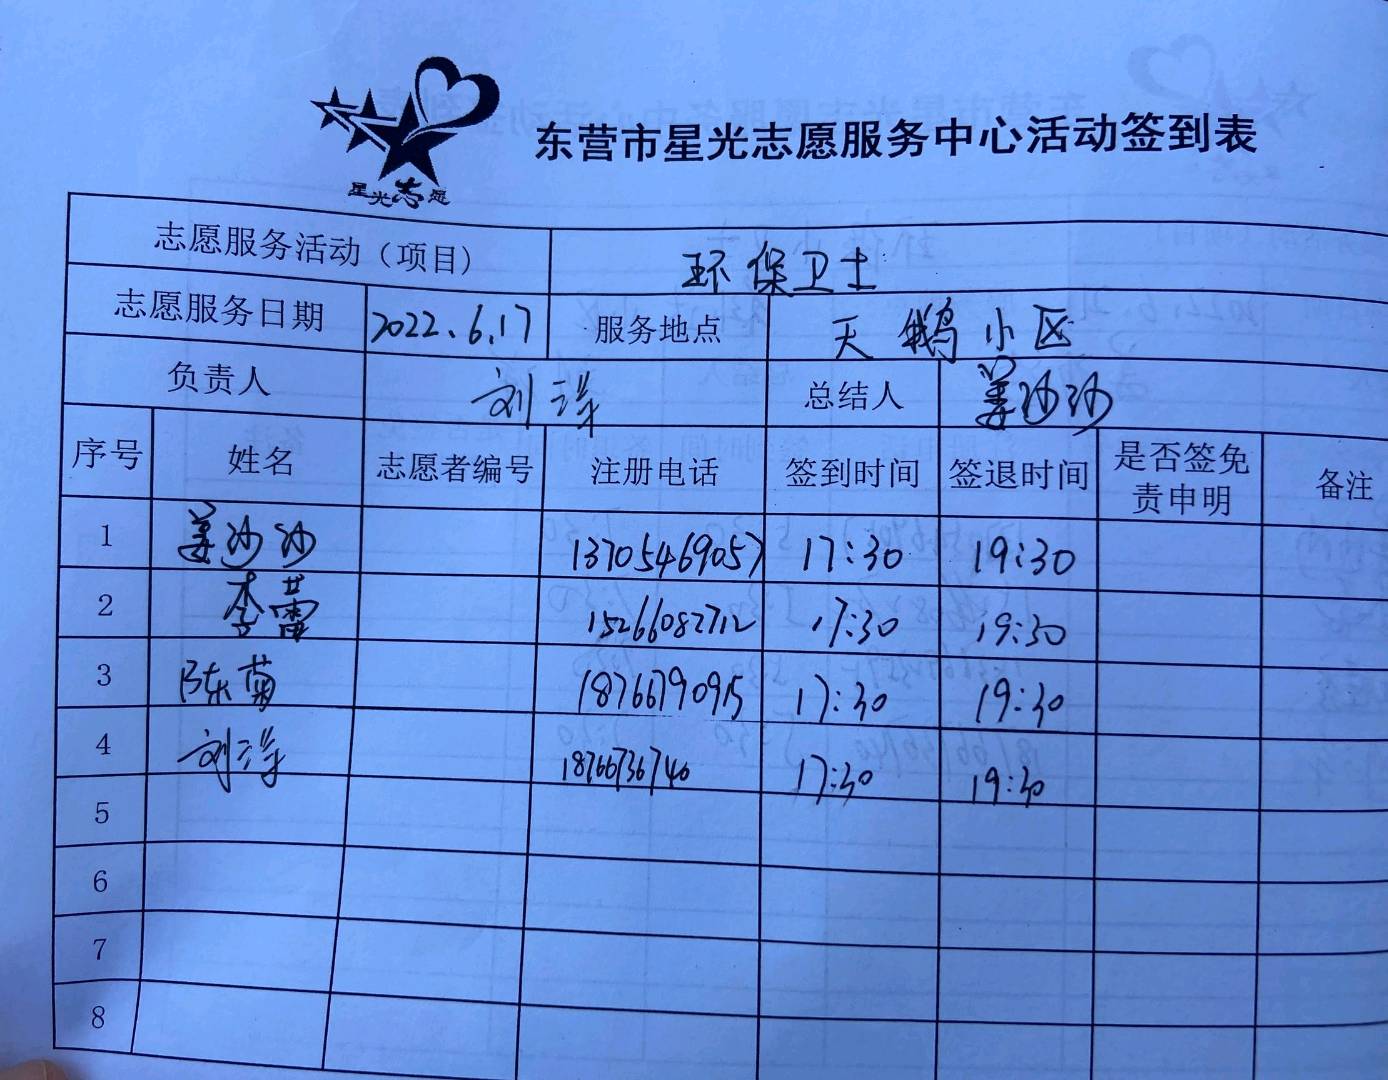 星光志愿
东营市星光志愿服务中心活动签到表
志愿服务活动（项目） 环保卫士
志愿服务日期 2022.6.17 服务地点 天鹅小区
负责人 刘洋 总结人 姜沙沙
序号 姓名 志愿者编号 注册电话 签到时间 签退时间 是否签免责申明 备注
1 姜沙沙 13705469057 17:30 19:30
2 李蕾 15266082712 17:30 19:30
3 陈菊 18766790915 17:30 19:30
4 刘洋 18766736740 17:30 19:30
5
6
7
8